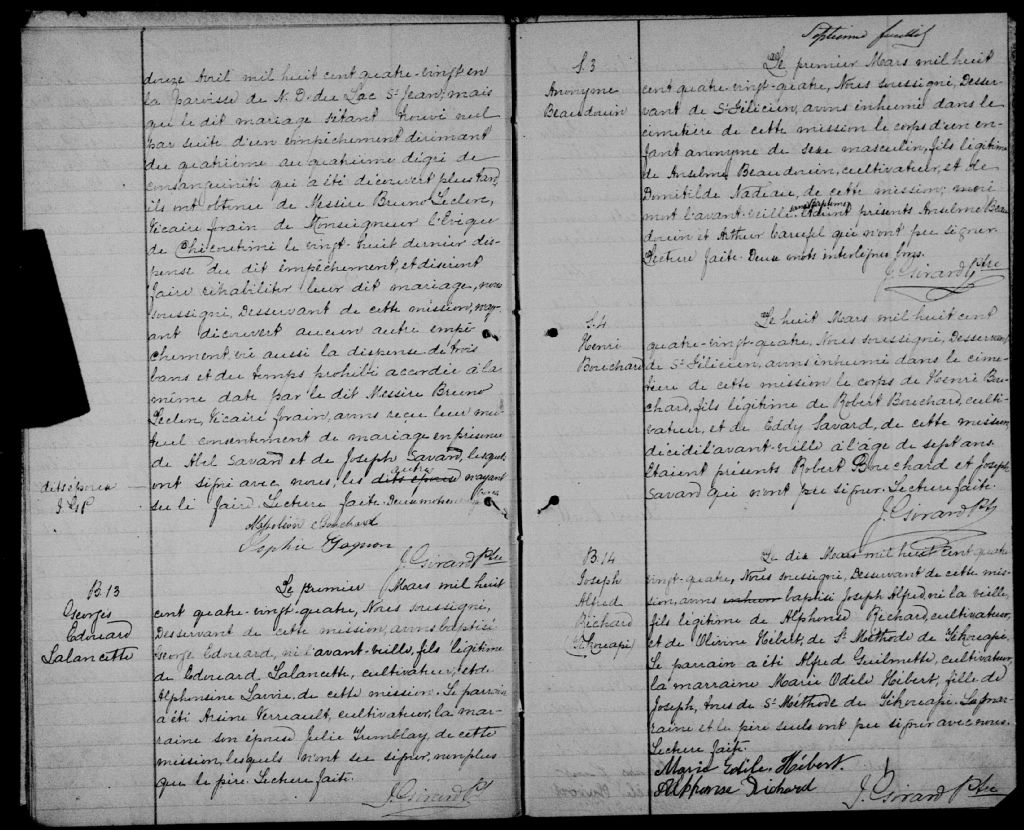 douze Avril mil huit cent quatre-vingt en
la Paroisse de N. D. du Lac St Jean, mais
que le dit mariage s'étant trouvé nul
par suite d'un empêchement dirimant
du quatrième au quatrième dégré de
consanguinité qui a été découvert plus tard,
ils ont obtenu de Messire Bruno Leclerc,
Vicaire forain de Monseigneur l'Evêque
de Chicoutimi le vingt-huit dernier dis-
pense du dit empêchement, et désirent
faire réhabiliter leur dit mariage, nous
soussigné, Desservant de cette mission, n'ay-
ant découvert aucun autre empê-
chement vu aussi la dispense de trois
bans et du temps prohibé accordée à la
même date par le dit Messire Bruno
Leclerc, Vicaire forain, avons reçu leur mu-
tuel consentement de mariage en présence
de Abel Savard et de Joseph Savard, lesquels
ont signé avec nous, les dits époux n'ayant
su le faire. Lecture faite.
dits époux
J. G. P
Napoléon Bouchard
Sophie Gagnon
J. Girard Ptre
B. 13
Georges
Edouard
Lalancette
Le premier Mars mil huit
cent quatre-vingt-quatre, Nous soussigné,
Desservant de cette mission, avons baptisé
George Edouard, né l'avant-veille, fils légitime
de Edouard Lalancette, cultivateur, et de
Alphonsine Lavoie, de cette mission. Le parrain
a été Arsène Verreault, cultivateur, la mar-
raine son épouse Julie Tremblay, de cette
mission, lesquels n'ont su signer, non plus
que le père. Lecture faite.
J. Girard Pt
Septième feuillet
S. 3
Anonyme
Beaudouin
Le premier Mars mil huit
cent quatre-vingt-quatre, Nous soussigné, Desser-
vant de St Félicien, avons inhumé dans le
cimetière de cette mission le corps d'un en-
fant anonyme de sexe masculin, fils légitime
de Anselme Beaudouin, cultivateur, et de
Domitilde Nadeau, de cette mission, mort
l'avant-veille. Etaient présents Anselme Beau-
douin et Arthur Carufel qui n'ont pu signer.
Lecture faite. Deux mots interlignés bons.
J. Girard Ptre
S. 4
Henri
Bouchard
Le huit Mars mil huit cent
quatre-vingt-quatre, Nous soussigné, Desservant
de St Félicien, avons inhumé dans le cime-
tière de cette mission le corps de Henri Bou-
chard, fils légitime de Robert Bouchard, culti-
vateur, et de Eddy Savard, de cette mission,
décédé l'avant-veille à l'âge de sept ans.
Etaient présents Robert Bouchard et Joseph
Savard qui n'ont pu signer. Lecture faite.
J. Girard Pt
B. 14
Joseph
Alfred
Richard
(Tikouapé)
Le dix Mars mil huit cent quatre
vingt-quatre, Nous soussigné, Desservant de cette mis-
sion, avons inhum baptisé Joseph Alfred, né la veille,
fils légitime de Alphonse Richard, cultivateur,
et de Olivine Hébert, de St Méthode de Tikouapé.
Le parrain a été Alfred Guilmette, cultivateur,
la marraine Marie Odile Hébert, fille de
Joseph, tous de St Méthode de Tikouapé. La mar-
raine et le père seuls ont pu signer avec nous.
Lecture faite.
Marie Edile Hébert.
Alphonse Richard
J. Girard Ptre